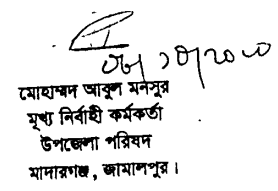 মোহাম্মদ আবুল মনসুর
মূখ্য নির্বাহী কর্মকর্তা
উপজেলা পরিষদ
মাদারগঞ্জ, জামালপুর।